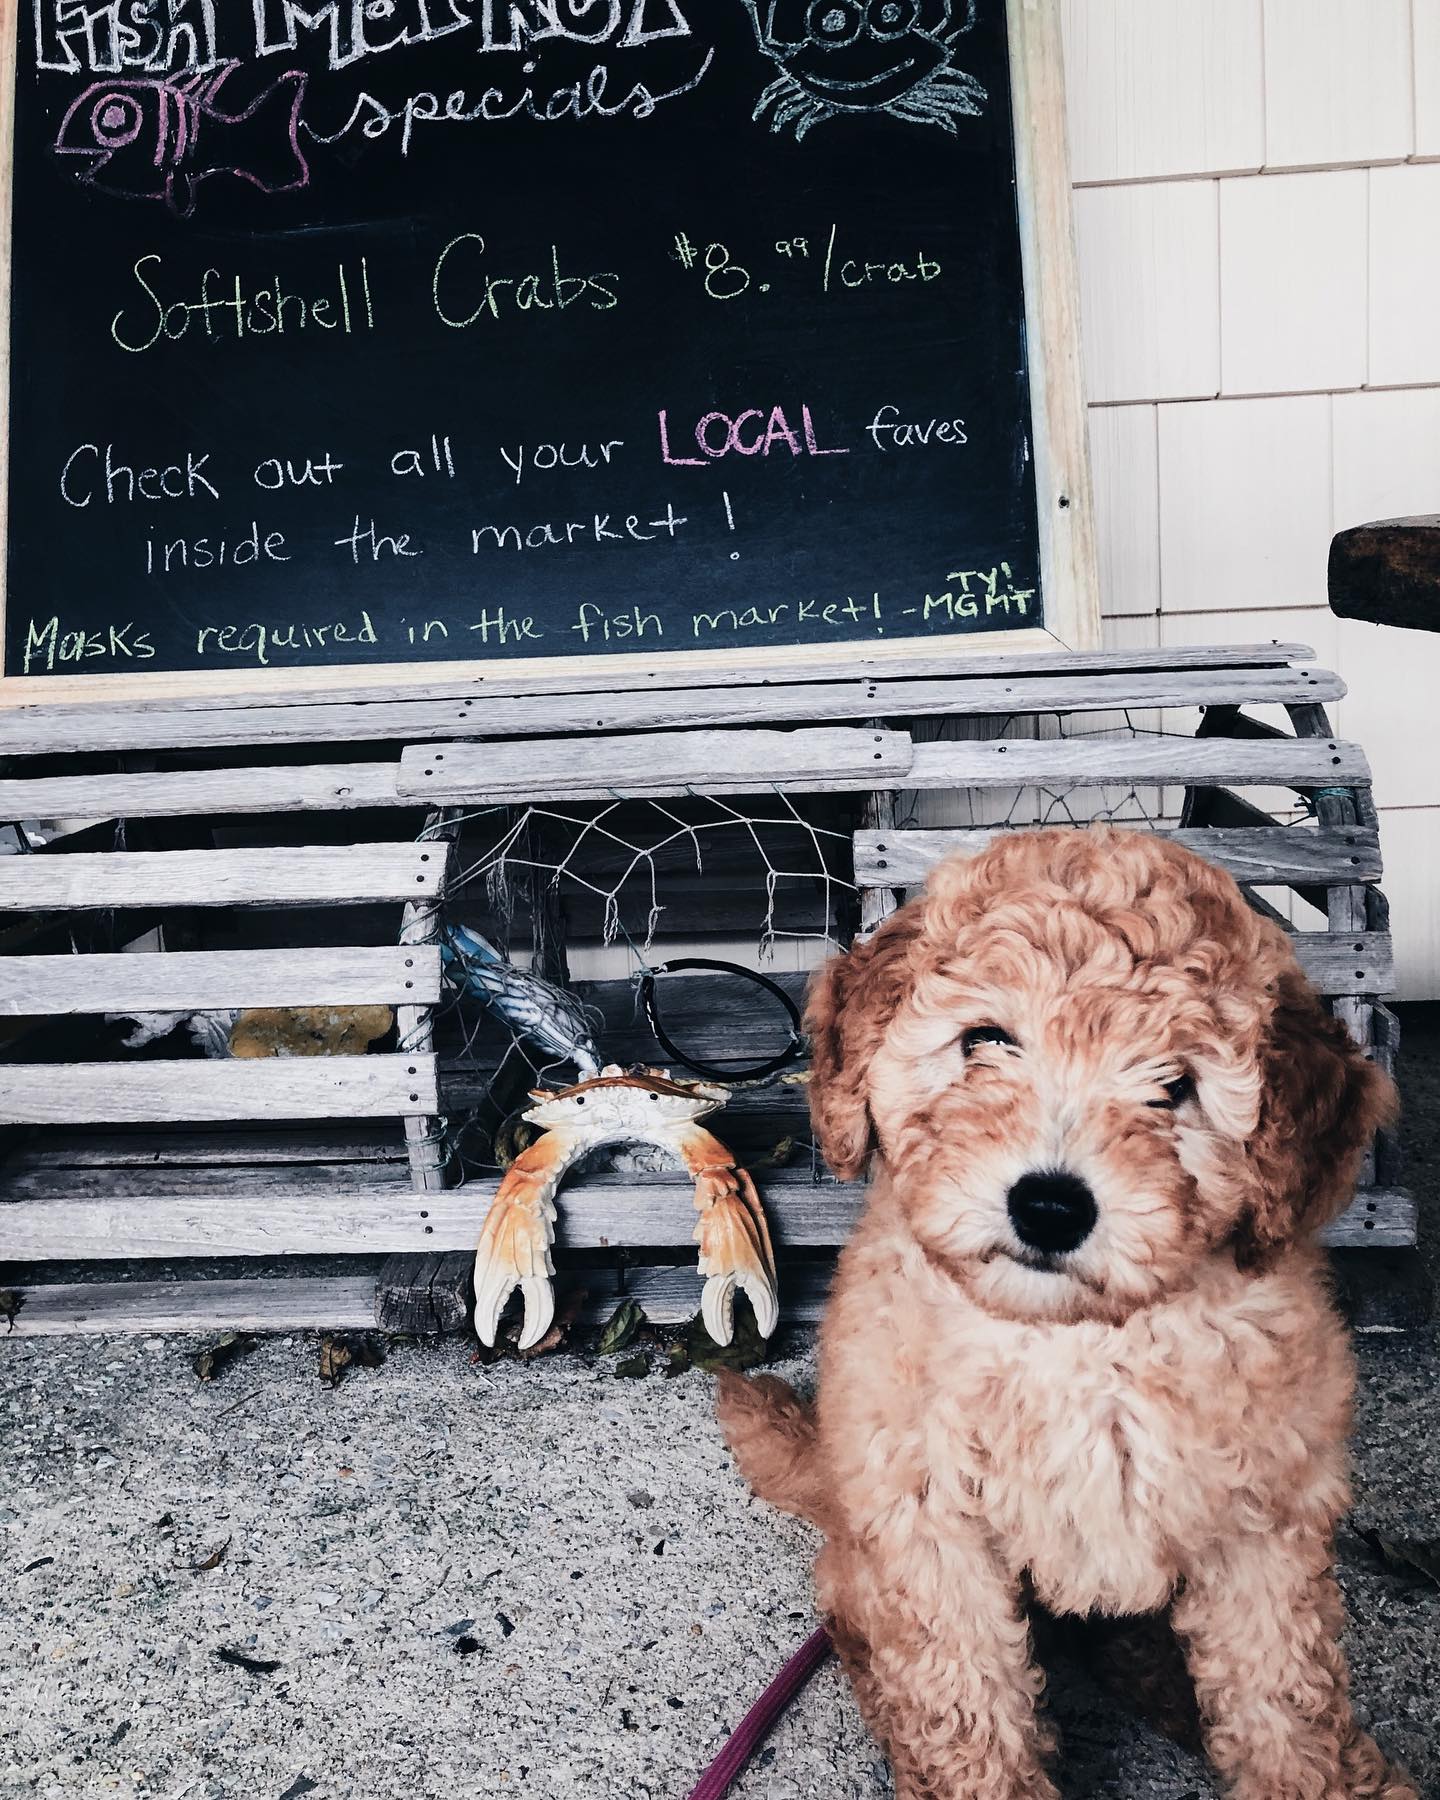 Fish Market
specials
Softshell Crabs $8.99/crab
Check out all your LOCAL faves
inside the market!
Masks required in the fish market! - TY!
MGMT